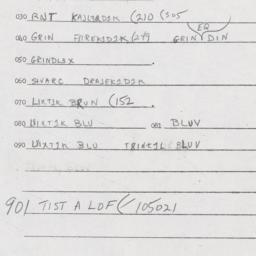 030 RNT KAJLRDIK (210 (305
EQ
040 GRIN FIREKDIK (29 GRIN DIN
050 GRINDLEX
060 SVARC DRAJEKDIK
070 LIKTIK BRUN (152
080 VIKTIK BLU 081 BLUV
090 VIXTIK BLU TRINTIL BLUV
901 TIST A LDF (105021